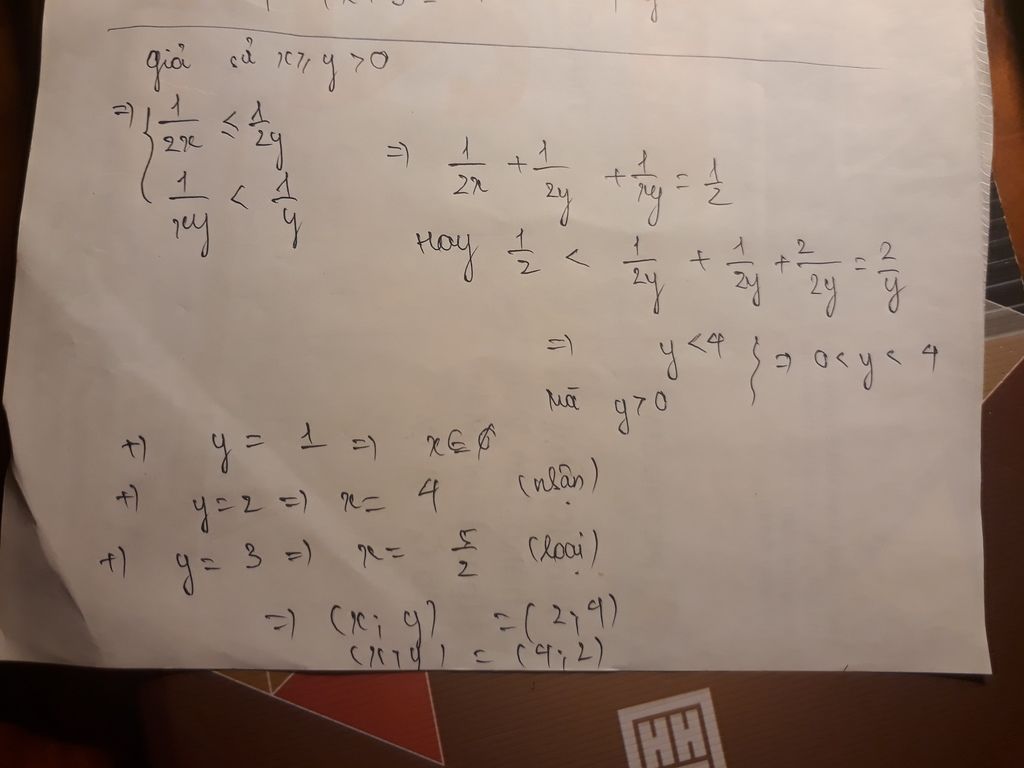 giả sử x ≥ y > 0
=> { 1/2x ≤ 1/2y
1/xy < 1/y
=> 1/2x + 1/2y + 1/xy = 1/2
Hay 1/2 < 1/2y + 1/2y + 2/2y = 2/y
=> y < 4 } => 0 < y < 4
mà y > 0
+) y = 1 => x ∈ ∅
+) y = 2 => x = 4 (nhận)
+) y = 3 => x = 5/2 (loại)
=> (x; y) = (2; 4)
(x; y) = (4; 2)